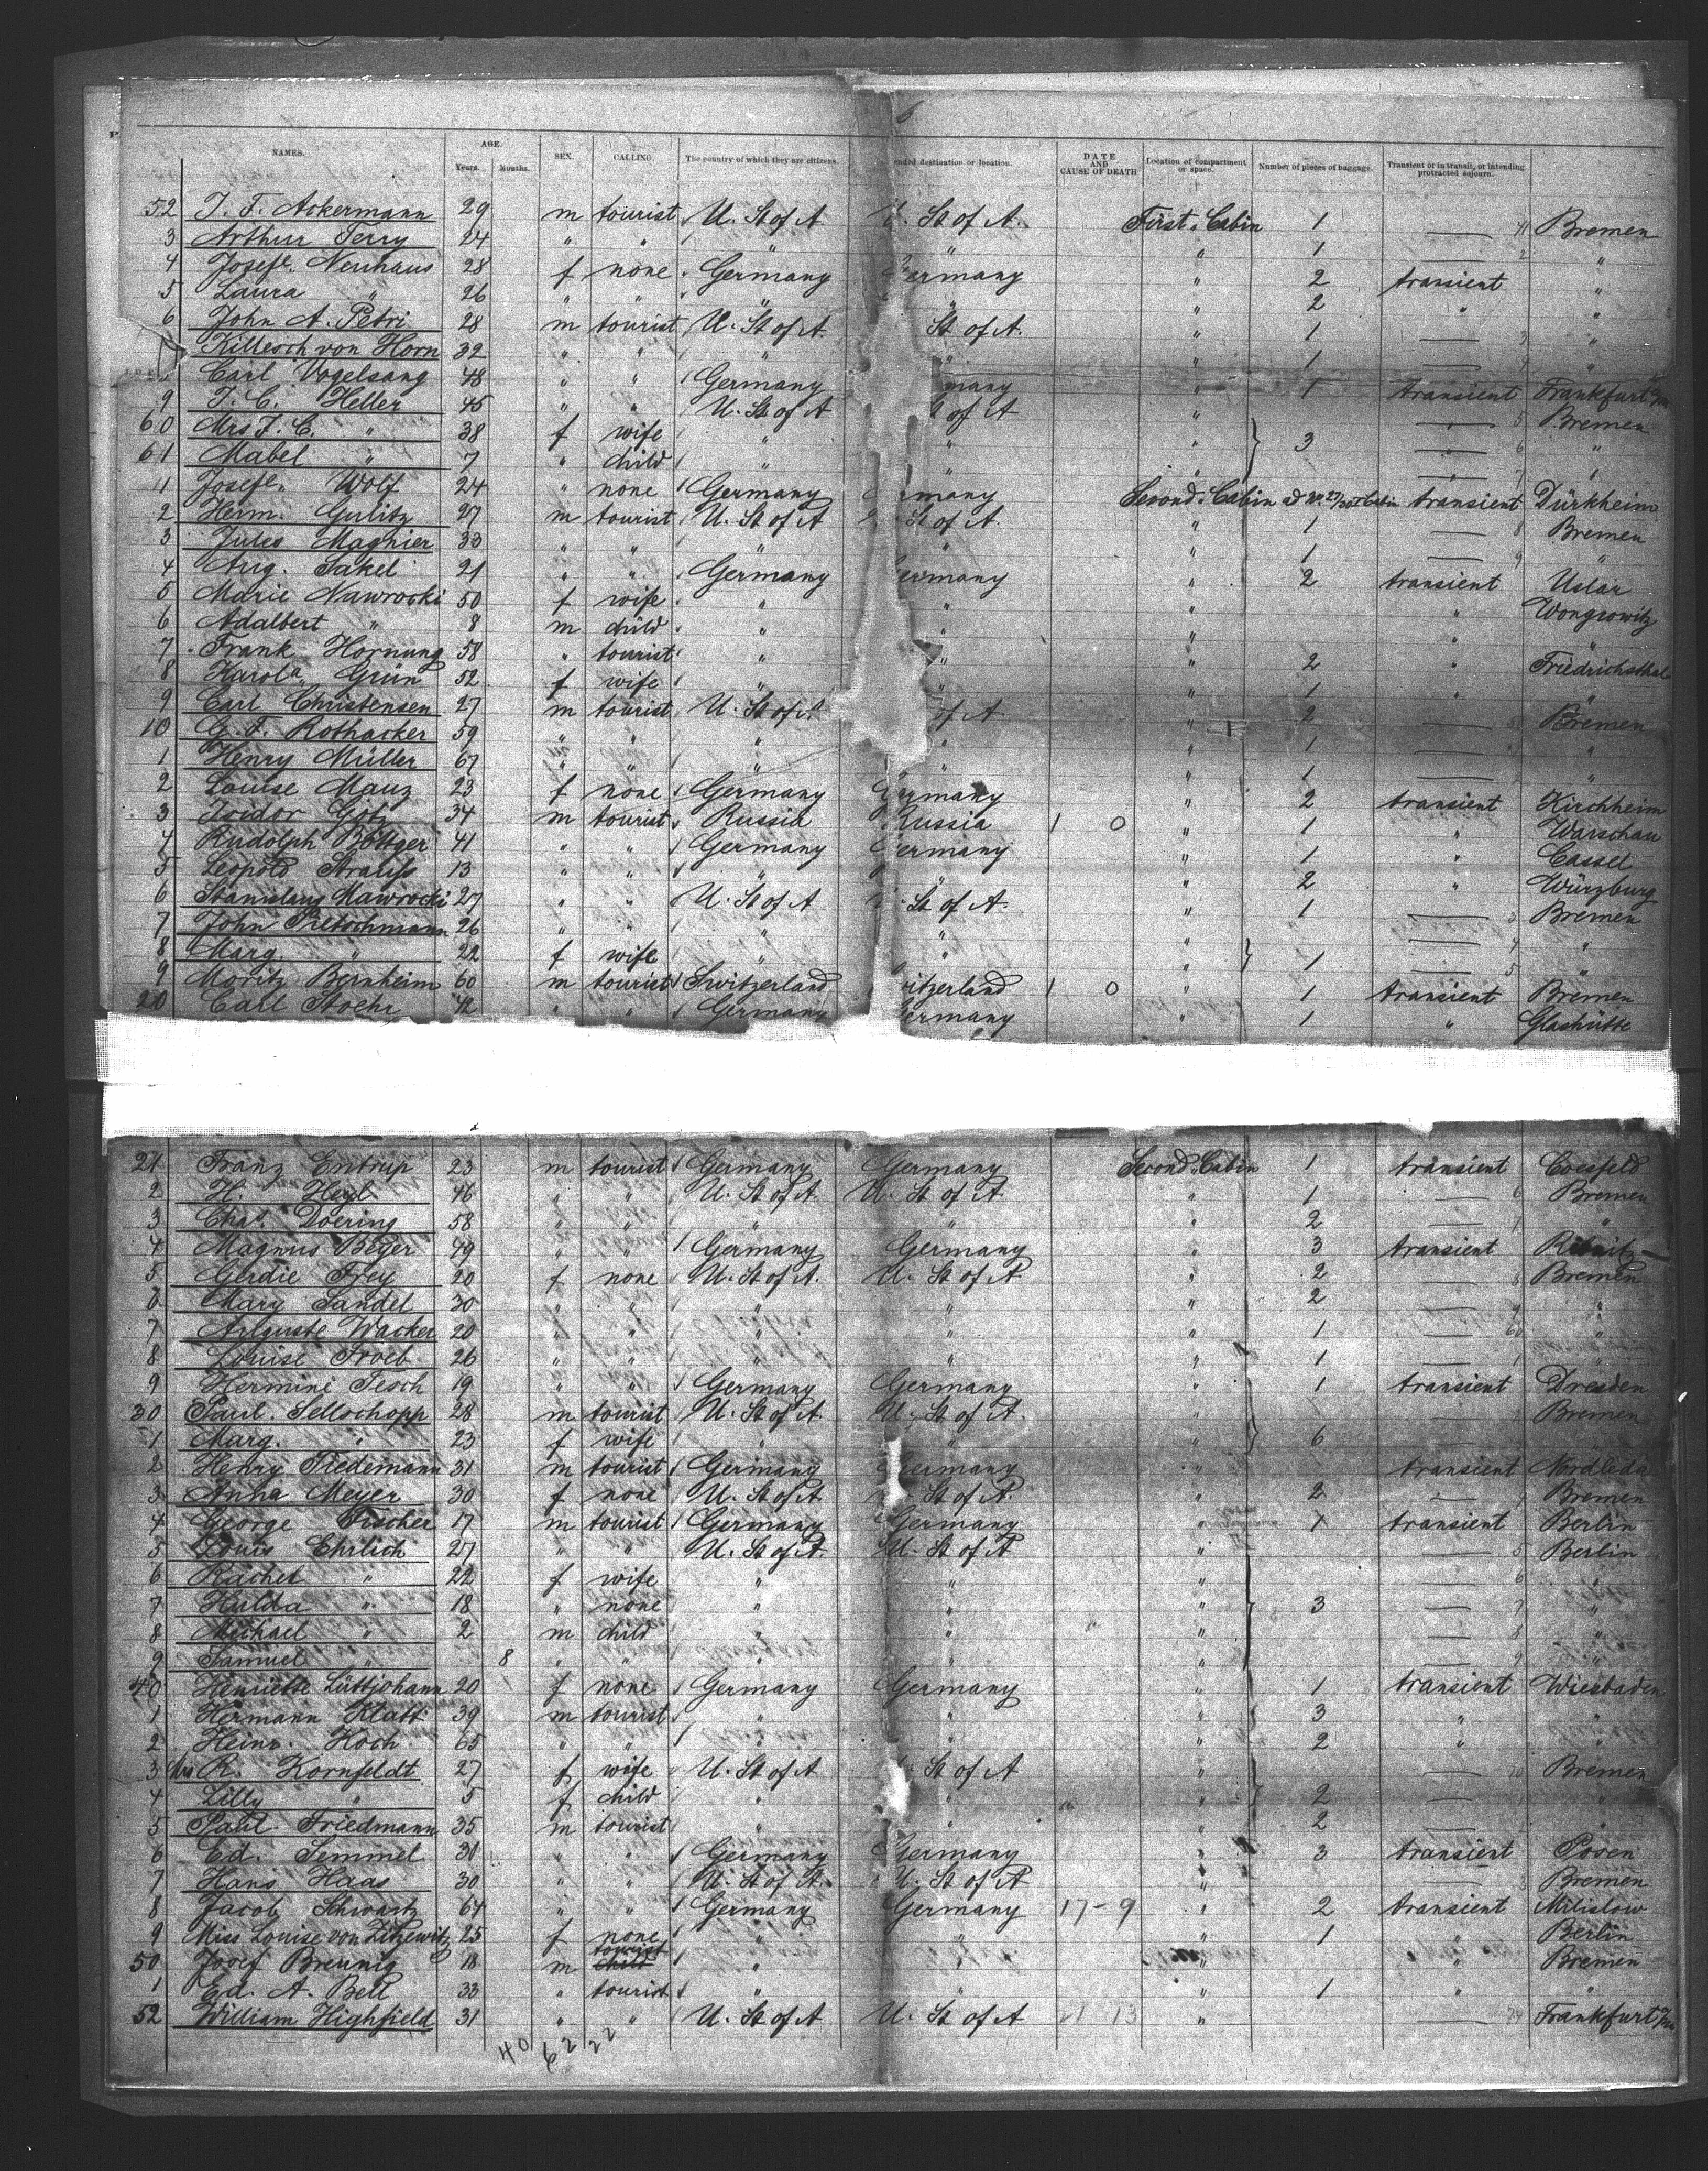 NAMES. AGE. Years. Months. SEX. CALLING. The country of which they are citizens. ended destination or location. DATE AND CAUSE OF DEATH Location of compartment or space. Number of pieces of baggage. Transient or in transit, or intending protracted sojourn.
52 J. F. Ackermann 29 m tourist U. St of A U. St of A. First Cabin 1 — 11 Bremen
3 Arthur Terry 24 " " " " " 1 — 2 "
4 Josefe. Neuhaus 28 f none Germany Germany " 2 transient "
5 Laura " 26 " " " " " 2 " "
6 John A. Petri 28 m tourist U. St of A. St of A. " 1 — 3 "
Killesch von Horn 32 " " " " " 1 — 4 "
Carl Vogelsang 48 " " Germany many " 1 transient Frankfurt a/m
9 J. C. Heller 45 " " U. St of A t of A " — 5 Bremen
60 Mrs J. C. " 38 f wife " " " 3 " 6 "
61 Mabel " 7 " child " " " — 7 "
11 Josefe. Wolf 24 " none Germany rmany Second Cabin transient Dürkheim
2 Herm. Gulitz 27 m tourist U. St of A St of A. " 1 — 8 Bremen
3 Jules Magnier 33 " " " " " 1 — 9 "
4 Aug. Sakel 21 " " Germany ermany " 2 transient Uslar
5 Marie Nawrocki 50 f wife " " " " Wongrowitz
6 Adalbert " 8 m child " " " " "
7 Frank Hornung 58 " tourist " " " 2 " Friedrichsthal
8 Karola Grün 52 f wife " " " 1 " "
9 Carl Christensen 27 m tourist U. St of A of A " 2 — Bremen
10 G. F. Rothacker 59 " " " " " 1 — "
1 Henry Müller 67 " " " " " 1 — "
2 Louise Mauz 23 f none Germany Germany " 2 transient Kirchheim
3 Isidor Götz 34 m tourist Russia Russia 1 0 " 1 " Warschau
4 Rudolph Böttger 41 " " Germany Germany " 1 " Cassel
5 Leopold Strauss 13 " " " " " 2 " Würzburg
6 Stanislaus Mawrocki 27 " " U. St of A St of A. " 1 — 3 Bremen
7 John Pretschmann 26 " " " " " — 4 "
8 Marg. " 22 f wife " " " 1 — 5 "
9 Moritz Bernheim 60 m tourist Switzerland itzerland 1 0 " 1 transient Bremen
20 Carl Stoehr 42 " " Germany ermany " 1 " Glashütte
21 Franz Entrup 23 m tourist Germany Germany Second Cabin 1 transient Coesfeld
2 H. Heyl 46 " " U. St of A. U. St of A " 1 — 6 Bremen
3 Chas. Doering 58 " " " " " 2 — 7 "
4 Magnus Beyer 49 " " Germany Germany " 3 transient Ribnitz
5 Gerdie Frey 20 f none U. St of A. U. St of A " 2 — 8 Bremen
6 Mary Sandel 30 " " " " " 2 — 9 "
7 Auguste Wacker 20 " " " " " 1 — 60 "
8 Louise Froeb 26 " " " " " 1 — 1 "
9 Hermine Tesch 19 " " Germany Germany " 1 transient Dresden
30 Paul. Sellschopp 28 m tourist U. St of A U. St of A. " — Bremen
1 Marg. " 23 f wife " " " 6 —
2 Henry Tiedemann 31 m tourist Germany Germany " transient Nordleda
3 Anna Meyer 30 f none U. St of A St of A. " 2 — Bremen
4 George Fischer 17 m tourist Germany Germany " 1 transient Berlin
5 Louis Ehrlich 27 " " U. St of A. U. St of A " — 5 Berlin
6 Rachel " 22 f wife " " " — 6 "
7 Hulda " 18 " none " " " 3 — 7 "
8 Michael " 2 m child " " " — 8 "
9 Samuel " 8 " " " " " — 9 "
40 Henriette Lüttjohann 20 f none Germany Germany " 1 transient Wiesbaden
1 Hermann Klatt 39 m tourist " " " 3 " "
2 Heinr. Koch 65 " " " " " 2 " "
3 Mrs R. Kornfeldt 27 f wife U. St of A St of A " — 70 Bremen
4 Lilly " 5 f child " " " 2 — "
5 Paul Friedmann 35 m tourist " " " 2 — "
6 Ed. Semmel 31 " " Germany Germany " 3 transient Posen
7 Hans Haas 30 " " U. St of A. U. St of A " — 3 Bremen
8 Jacob Schwartz 64 " " Germany Germany 17-9 " 2 transient Milislow
9 Miss Louise von Zitzewitz 25 f none " " " 1 " Berlin
50 Josef Breunig 18 m tourist child " " " " Bremen
1 Ed. A. Bell 33 " tourist " " " 1 " "
52 William Highfield 31 " " U. St of A U. St of A 13 " — 74 Frankfurt a/m
40 62 22